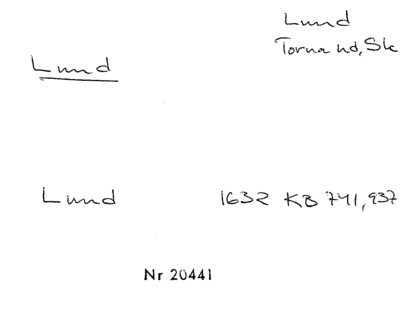 Lund
Torna hd, Sk
Lund
Lund 1632 KB 741, 937
Nr 20441